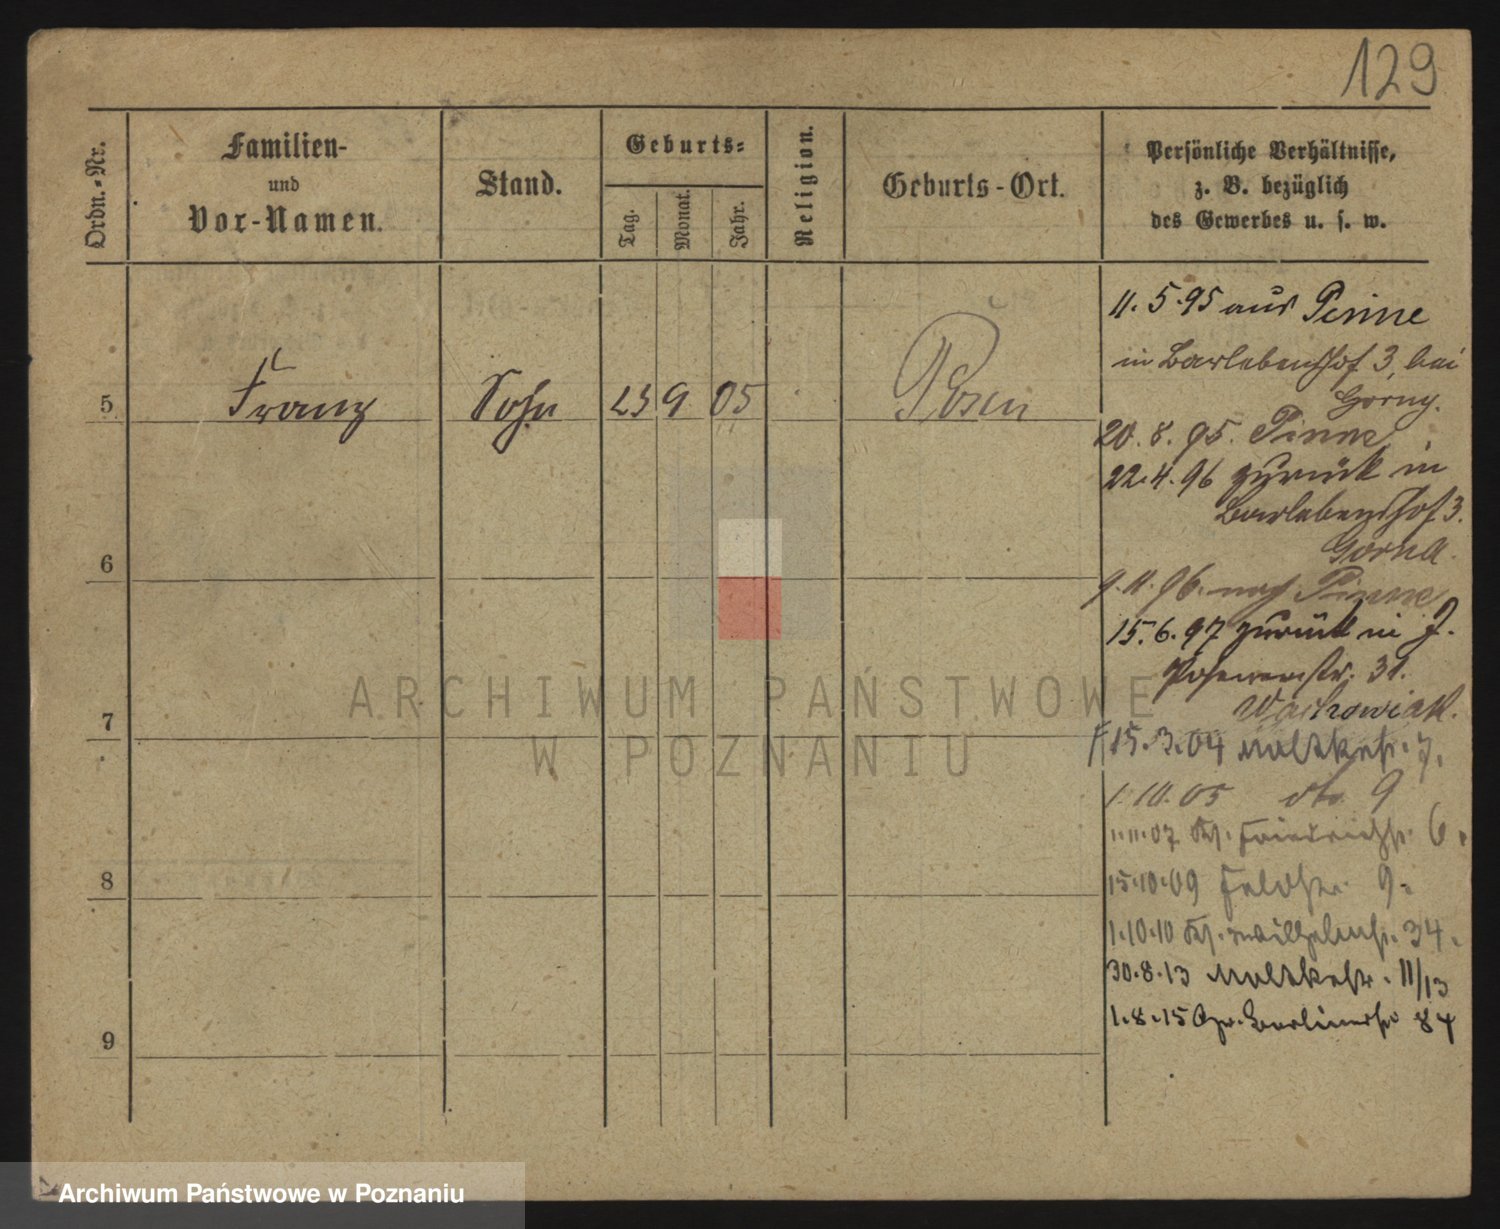 129
Ordn.-Nr.
Familien-
und
Vor-Namen.
Stand.
Geburts-
Tag.
Monat.
Jahr.
Religion.
Geburts-Ort.
Persönliche Verhältnisse,
z. B. bezüglich
des Gewerbes u. s. w.
5 Franz Sohn 23 9 05 Posen
6
7
8
9
11. 5. 95 aus Pinne
in Bartebenshof 3, bei
Gorny.
20. 8. 95. Pinne
22. 4. 96 zurück in
Bartebenshof 3.
Gorna.
9. 11. 96. nach Pinne
15. 6. 97 zurück in J.
Posenerstr. 31.
Wachowiak.
15. 3. 04 Moltkestr. 7.
1. 10. 05 dto. 9
1. 11. 07 Friedrichstr. 6.
15. 10. 09 Feldstr. 9.
1. 10. 10 Wilhelmstr. 34.
30. 8. 13 Moltkestr. 11/13
1. 8. 15 Berlinerstr. 84
ARCHIWUM PAŃSTWOWE
W POZNANIU
Archiwum Państwowe w Poznaniu